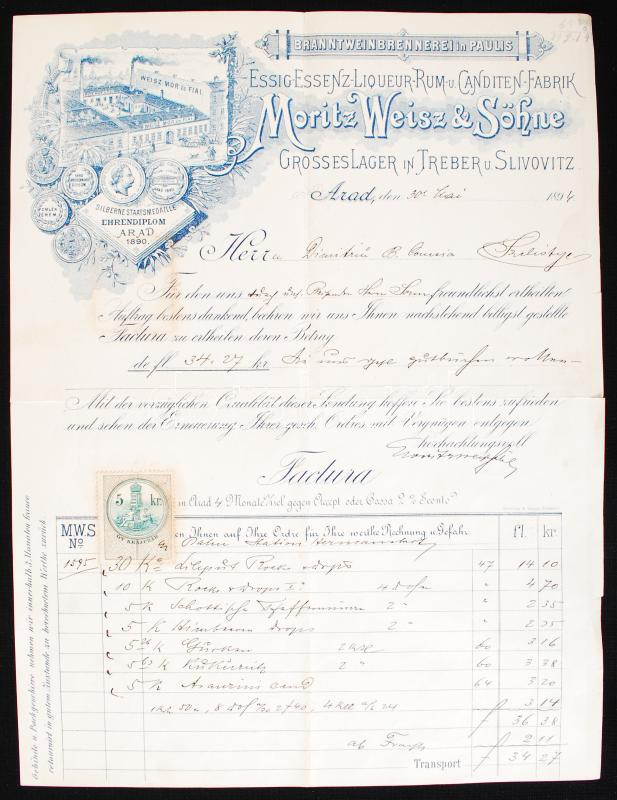 BRANNTWEINBRENNEREI in PAULIS
ESSIG-ESSENZ-LIQUEUR-RUM-U. CANDITEN-FABRIK
Moritz Weisz & Söhne
GROSSES LAGER IN TREBER U. SLIVOVITZ
WEISZ MÓR és FIAI
SILBERNE STAATSMEDAILLE
EHRENDIPLOM
ARAD
1890.
Arad, den 30 Mai 1894
Herrn Dimitriu B. Comsia
Für den uns durch uns. Herrn freundlichst ertheilten
Auftrag bestens dankend, beehren wir uns Ihnen nachstehend billigst gestellte
Factura zu ertheilen deren Betrag
de fl 34.27 kr. Sie uns gutbuchen wollen
Mit der vorzüglichen Qualität dieser Sendung hoffen Sie bestens zufrieden
und sehen der Erneuerung Ihrer gesch. Ordres mit Vergnügen entgegen
hochachtungsvoll
Factura
5 kr.
in Arad 4 Monate Ziel gegen Accept oder Cassa 2% Sconto
M.W.S
No
en Ihnen auf Ihre Ordre für Ihre werthe Rechnung u. Gefahr. fl. kr
Bahn Station Hermannstadt
1595 30 Ko Rocks drops 47 14 10
10 K Rocks drops 4 Dosen " 4 70
5 K Schottische 2 " " 2 35
5 K Himbeer drops 2 " " 2 35
5 K Gurken 60 3 16
5 K Kukurutz 2 " 60 3 38
5 K cand 64 3 20
3 14
36 38
ab Fracht 2 11
Transport 34 27
Gebinde u. Packgeschirre nehmen wir innerhalb 2 Monaten franco
retournirt in gutem Zustande zu berechnetem Werthe zurück